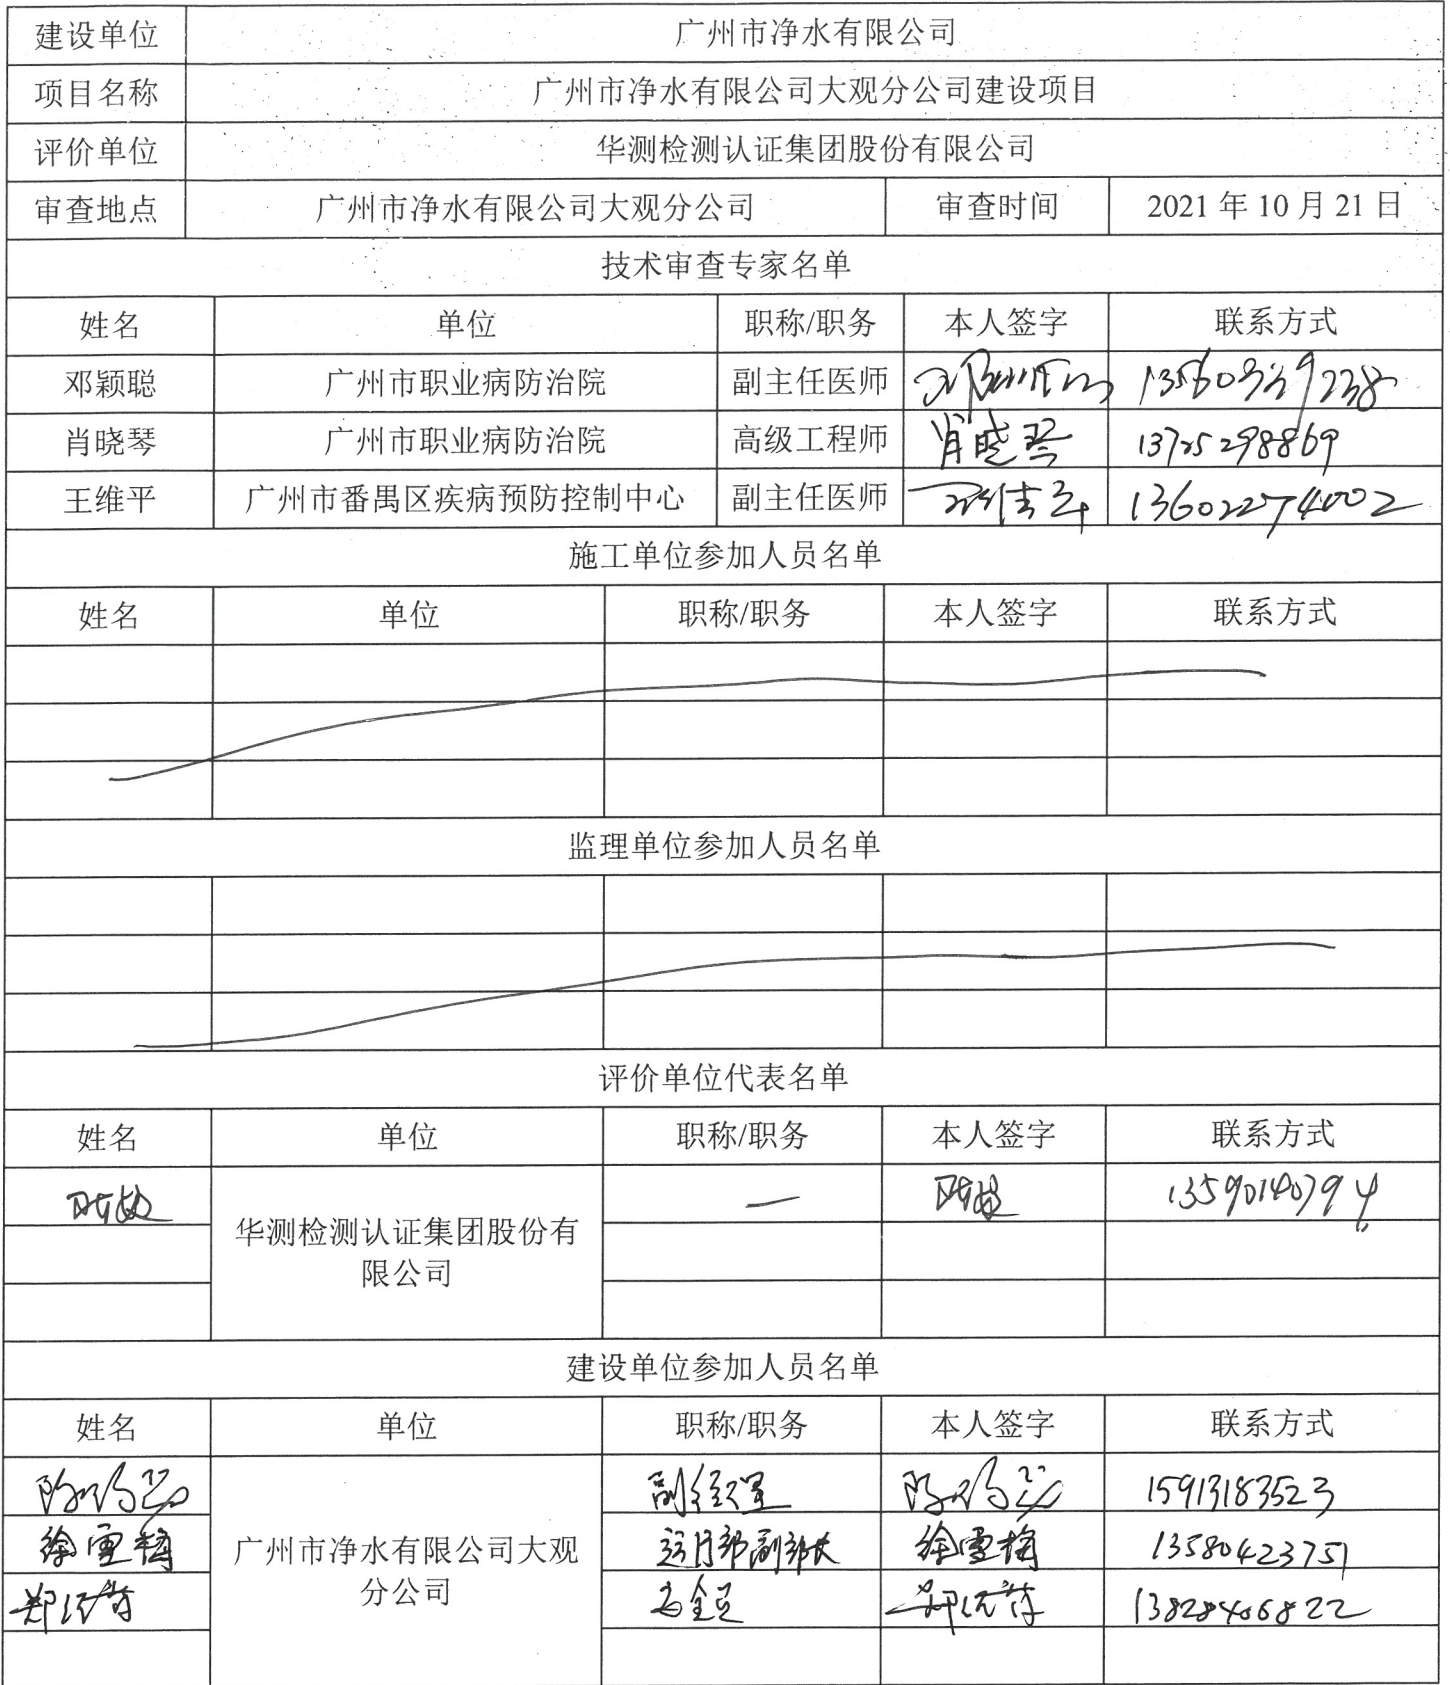 建设单位 广州市净水有限公司
项目名称 广州市净水有限公司大观分公司建设项目
评价单位 华测检测认证集团股份有限公司
审查地点 广州市净水有限公司大观分公司 审查时间 2021年10月21日
技术审查专家名单
姓名 单位 职称/职务 本人签字 联系方式
邓颖聪 广州市职业病防治院 副主任医师
肖晓琴 广州市职业病防治院 高级工程师 肖晓琴 13725298869
王维平 广州市番禺区疾病预防控制中心 副主任医师 王维平 13602274002
施工单位参加人员名单
姓名 单位 职称/职务 本人签字 联系方式
监理单位参加人员名单
评价单位代表名单
姓名 单位 职称/职务 本人签字 联系方式
— 13590140794
华测检测认证集团股份有
限公司
建设单位参加人员名单
姓名 单位 职称/职务 本人签字 联系方式
副经理 15913183523
徐雪梅 运行部副部长 徐雪梅 13580423751
广州市净水有限公司大观
分公司
安全员 13828406822